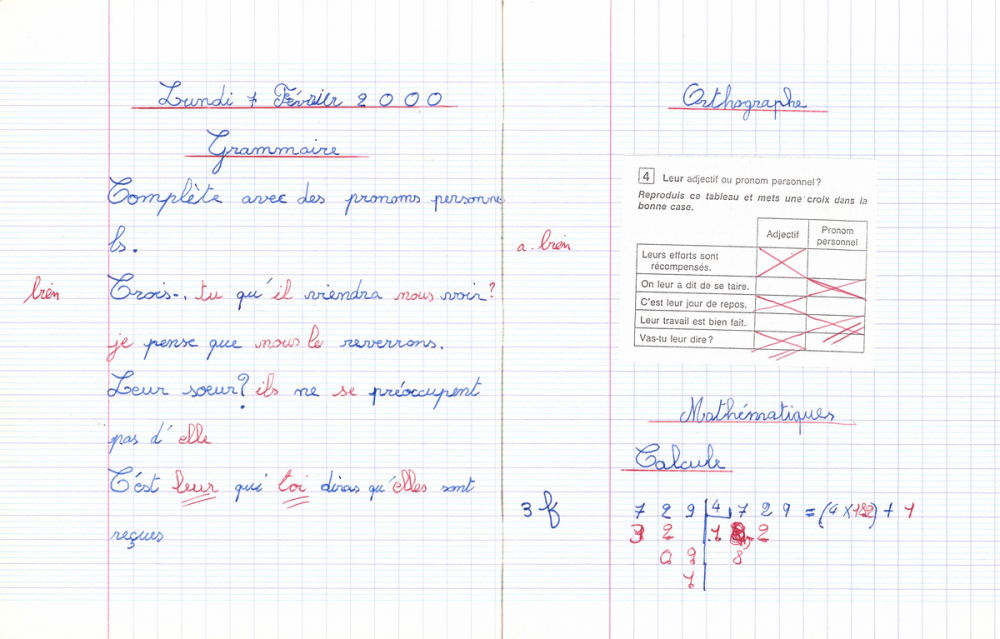 Lundi 7 Février 2000
Grammaire
Complète avec des pronoms personne
ls.
bien
Crois-, tu qu'il viendra nous voir?
je pense que nous le reverrons.
Leur sœur? ils ne se préoccupent
pas d'elle
C'est leur qui toi diras qu'elles sont
reçues
Orthographe
a. bien
4 Leur adjectif ou pronom personnel?
Reproduis ce tableau et mets une croix dans la
bonne case.
Adjectif
Pronom
personnel
Leurs efforts sont
récompensés.
On leur a dit de se taire.
C'est leur jour de repos.
Leur travail est bien fait.
Vas-tu leur dire?
Mathématiques
Calcule
3 f
7 2 9 4 7 2 9 = (4 x 182) + 1
3 2 1 8 2
0 9 8
1